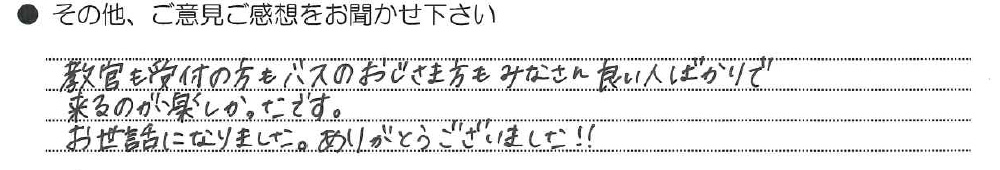 ● その他、ご意見ご感想をお聞かせ下さい
教官も受付の方もバスのおじさま方もみなさん良い人ばかりで
来るのが楽しかったです。
お世話になりました。ありがとうございました!!